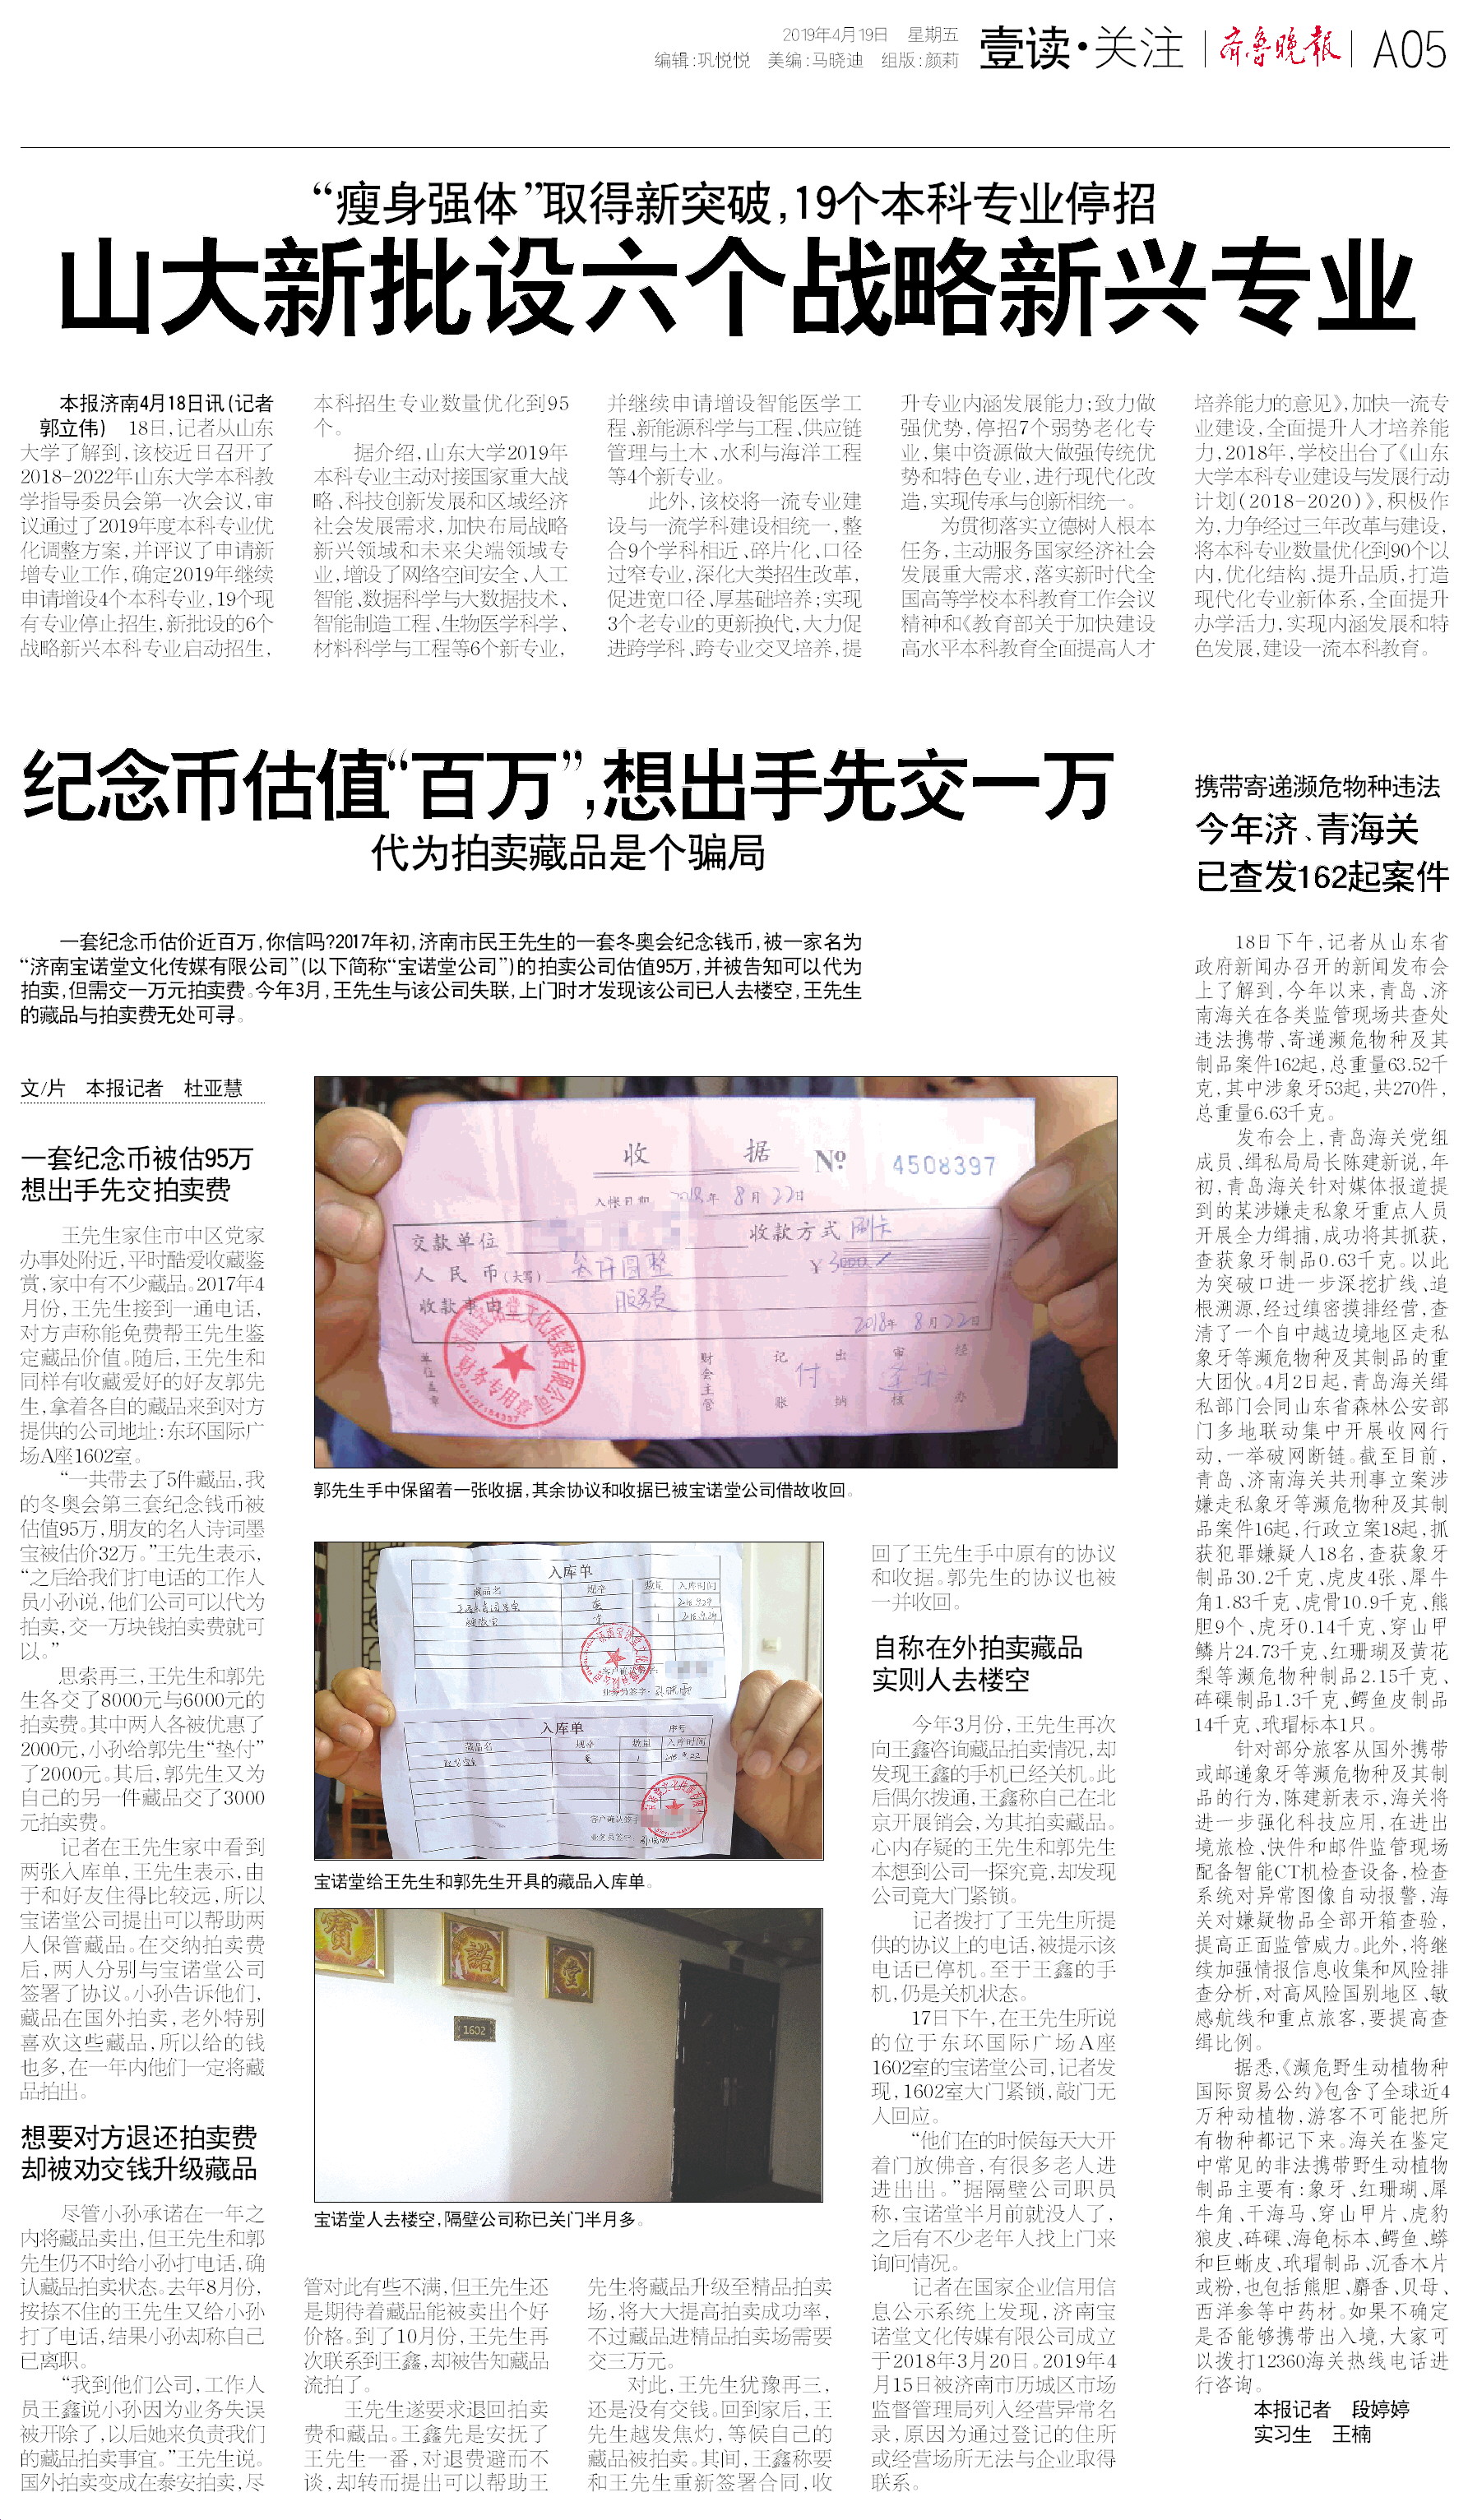 2019年4月19日 星期五
编辑:巩悦悦 美编:马晓迪 组版:颜莉
壹读·关注
齐鲁晚报
A05
“瘦身强体”取得新突破,19个本科专业停招
山大新批设六个战略新兴专业
本报济南4月18日讯(记者
郭立伟) 18日,记者从山东
大学了解到,该校近日召开了
2018-2022年山东大学本科教
学指导委员会第一次会议,审
议通过了2019年度本科专业优
化调整方案,并评议了申请新
增专业工作,确定2019年继续
申请增设4个本科专业,19个现
有专业停止招生,新批设的6个
战略新兴本科专业启动招生,
本科招生专业数量优化到95
个。
据介绍,山东大学2019年
本科专业主动对接国家重大战
略、科技创新发展和区域经济
社会发展需求,加快布局战略
新兴领域和未来尖端领域专
业,增设了网络空间安全、人工
智能、数据科学与大数据技术、
智能制造工程、生物医学科学、
材料科学与工程等6个新专业,
并继续申请增设智能医学工
程、新能源科学与工程、供应链
管理与土木、水利与海洋工程
等4个新专业。
此外,该校将一流专业建
设与一流学科建设相统一,整
合9个学科相近、碎片化、口径
过窄专业,深化大类招生改革,
促进宽口径、厚基础培养;实现
3个老专业的更新换代,大力促
进跨学科、跨专业交叉培养,提
升专业内涵发展能力;致力做
强优势,停招7个弱势老化专
业,集中资源做大做强传统优
势和特色专业,进行现代化改
造,实现传承与创新相统一。
为贯彻落实立德树人根本
任务,主动服务国家经济社会
发展重大需求,落实新时代全
国高等学校本科教育工作会议
精神和《教育部关于加快建设
高水平本科教育全面提高人才
培养能力的意见》,加快一流专
业建设,全面提升人才培养能
力,2018年,学校出台了《山东
大学本科专业建设与发展行动
计划(2018-2020)》,积极作
为,力争经过三年改革与建设,
将本科专业数量优化到90个以
内,优化结构、提升品质,打造
现代化专业新体系,全面提升
办学活力,实现内涵发展和特
色发展,建设一流本科教育。
纪念币估值“百万”,想出手先交一万
代为拍卖藏品是个骗局
一套纪念币估价近百万,你信吗?2017年初,济南市民王先生的一套冬奥会纪念钱币,被一家名为
“济南宝诺堂文化传媒有限公司”(以下简称“宝诺堂公司”)的拍卖公司估值95万,并被告知可以代为
拍卖,但需交一万元拍卖费。今年3月,王先生与该公司失联,上门时才发现该公司已人去楼空,王先生
的藏品与拍卖费无处可寻。
文/片 本报记者 杜亚慧
一套纪念币被估95万
想出手先交拍卖费
王先生家住市中区党家
办事处附近,平时酷爱收藏鉴
赏,家中有不少藏品。2017年4
月份,王先生接到一通电话,
对方声称能免费帮王先生鉴
定藏品价值。随后,王先生和
同样有收藏爱好的好友郭先
生,拿着各自的藏品来到对方
提供的公司地址:东环国际广
场A座1602室。
“一共带去了5件藏品,我
的冬奥会第三套纪念钱币被
估值95万,朋友的名人诗词墨
宝被估价32万。”王先生表示,
“之后给我们打电话的工作人
员小孙说,他们公司可以代为
拍卖,交一万块钱拍卖费就可
以。”
思索再三,王先生和郭先
生各交了8000元与6000元的
拍卖费。其中两人各被优惠了
2000元,小孙给郭先生“垫付”
了2000元。其后,郭先生又为
自己的另一件藏品交了3000
元拍卖费。
记者在王先生家中看到
两张入库单,王先生表示,由
于和好友住得比较远,所以
宝诺堂公司提出可以帮助两
人保管藏品。在交纳拍卖费
后,两人分别与宝诺堂公司
签署了协议。小孙告诉他们,
藏品在国外拍卖,老外特别
喜欢这些藏品,所以给的钱
也多,在一年内他们一定将藏
品拍出。
想要对方退还拍卖费
却被劝交钱升级藏品
尽管小孙承诺在一年之
内将藏品卖出,但王先生和郭
先生仍不时给小孙打电话,确
认藏品拍卖状态。去年8月份,
按捺不住的王先生又给小孙
打了电话,结果小孙却称自己
已离职。
“我到他们公司,工作人
员王鑫说小孙因为业务失误
被开除了,以后她来负责我们
的藏品拍卖事宜。”王先生说。
国外拍卖变成在泰安拍卖,尽
收 据
№ 4508397
入帐日期 2018年8月22日
交款单位
收款方式 刷卡
人民币(大写) 叁仟圆整
¥3000
收款事由 服务费
2018年8月22日
济南宝诺堂文化传媒有限公司
财务专用章
单位盖章
财会主管
记账
出纳
审核
经办
付
郭先生手中保留着一张收据,其余协议和收据已被宝诺堂公司借故收回。
入库单
藏品名 规格 数量 入库时间
业务员签字:
入库单 序号
藏品名 规格 数量 入库时间
客户确认签字
业务员签字
宝诺堂给王先生和郭先生开具的藏品入库单。
寶
諾
堂
1602
宝诺堂人去楼空,隔壁公司称已关门半月多。
管对此有些不满,但王先生还
是期待着藏品能被卖出个好
价格。到了10月份,王先生再
次联系到王鑫,却被告知藏品
流拍了。
王先生遂要求退回拍卖
费和藏品。王鑫先是安抚了
王先生一番,对退费避而不
谈,却转而提出可以帮助王
先生将藏品升级至精品拍卖
场,将大大提高拍卖成功率,
不过藏品进精品拍卖场需要
交三万元。
对此,王先生犹豫再三,
还是没有交钱。回到家后,王
先生越发焦灼,等候自己的
藏品被拍卖。其间,王鑫称要
和王先生重新签署合同,收
回了王先生手中原有的协议
和收据。郭先生的协议也被
一并收回。
自称在外拍卖藏品
实则人去楼空
今年3月份,王先生再次
向王鑫咨询藏品拍卖情况,却
发现王鑫的手机已经关机。此
后偶尔拨通,王鑫称自己在北
京开展销会,为其拍卖藏品。
心内存疑的王先生和郭先生
本想到公司一探究竟,却发现
公司竟大门紧锁。
记者拨打了王先生所提
供的协议上的电话,被提示该
电话已停机。至于王鑫的手
机,仍是关机状态。
17日下午,在王先生所说
的位于东环国际广场A座
1602室的宝诺堂公司,记者发
现,1602室大门紧锁,敲门无
人回应。
“他们在的时候每天大开
着门放佛音,有很多老人进
进出出。”据隔壁公司职员
称,宝诺堂半月前就没人了,
之后有不少老年人找上门来
询问情况。
记者在国家企业信用信
息公示系统上发现,济南宝
诺堂文化传媒有限公司成立
于2018年3月20日。2019年4
月15日被济南市历城区市场
监督管理局列入经营异常名
录,原因为通过登记的住所
或经营场所无法与企业取得
联系。
携带寄递濒危物种违法
今年济、青海关
已查发162起案件
18日下午,记者从山东省
政府新闻办召开的新闻发布会
上了解到,今年以来,青岛、济
南海关在各类监管现场共查处
违法携带、寄递濒危物种及其
制品案件162起,总重量63.52千
克,其中涉象牙53起,共270件,
总重量6.63千克。
发布会上,青岛海关党组
成员、缉私局局长陈建新说,年
初,青岛海关针对媒体报道提
到的某涉嫌走私象牙重点人员
开展全力缉捕,成功将其抓获,
查获象牙制品0.63千克。以此
为突破口进一步深挖扩线、追
根溯源,经过缜密摸排经营,查
清了一个自中越边境地区走私
象牙等濒危物种及其制品的重
大团伙。4月2日起,青岛海关缉
私部门会同山东省森林公安部
门多地联动集中开展收网行
动,一举破网断链。截至目前,
青岛、济南海关共刑事立案涉
嫌走私象牙等濒危物种及其制
品案件16起,行政立案18起,抓
获犯罪嫌疑人18名,查获象牙
制品30.2千克、虎皮4张、犀牛
角1.83千克、虎骨10.9千克、熊
胆9个、虎牙0.14千克、穿山甲
鳞片24.73千克、红珊瑚及黄花
梨等濒危物种制品2.15千克、
砗磲制品1.3千克、鳄鱼皮制品
14千克、玳瑁标本1只。
针对部分旅客从国外携带
或邮递象牙等濒危物种及其制
品的行为,陈建新表示,海关将
进一步强化科技应用,在进出
境旅检、快件和邮件监管现场
配备智能CT机检查设备,检查
系统对异常图像自动报警,海
关对嫌疑物品全部开箱查验,
提高正面监管威力。此外,将继
续加强情报信息收集和风险排
查分析,对高风险国别地区、敏
感航线和重点旅客,要提高查
缉比例。
据悉,《濒危野生动植物种
国际贸易公约》包含了全球近4
万种动植物,游客不可能把所
有物种都记下来。海关在鉴定
中常见的非法携带野生动植物
制品主要有:象牙、红珊瑚、犀
牛角、干海马、穿山甲片、虎豹
狼皮、砗磲、海龟标本、鳄鱼、蟒
和巨蜥皮、玳瑁制品、沉香木片
或粉,也包括熊胆、麝香、贝母、
西洋参等中药材。如果不确定
是否能够携带出入境,大家可
以拨打12360海关热线电话进
行咨询。
本报记者 段婷婷
实习生 王楠